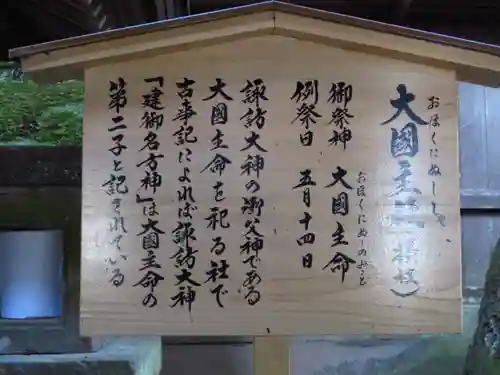 おほくにぬししゃ
大國主社（摂社）
御祭神　大國主命
おほくにぬしのみこと
例祭日　五月十四日
諏訪大神の御父神である
大國主命を祀る社で
古事記によれば諏訪大神
「建御名方神」は大國主命の
第二子と記されている